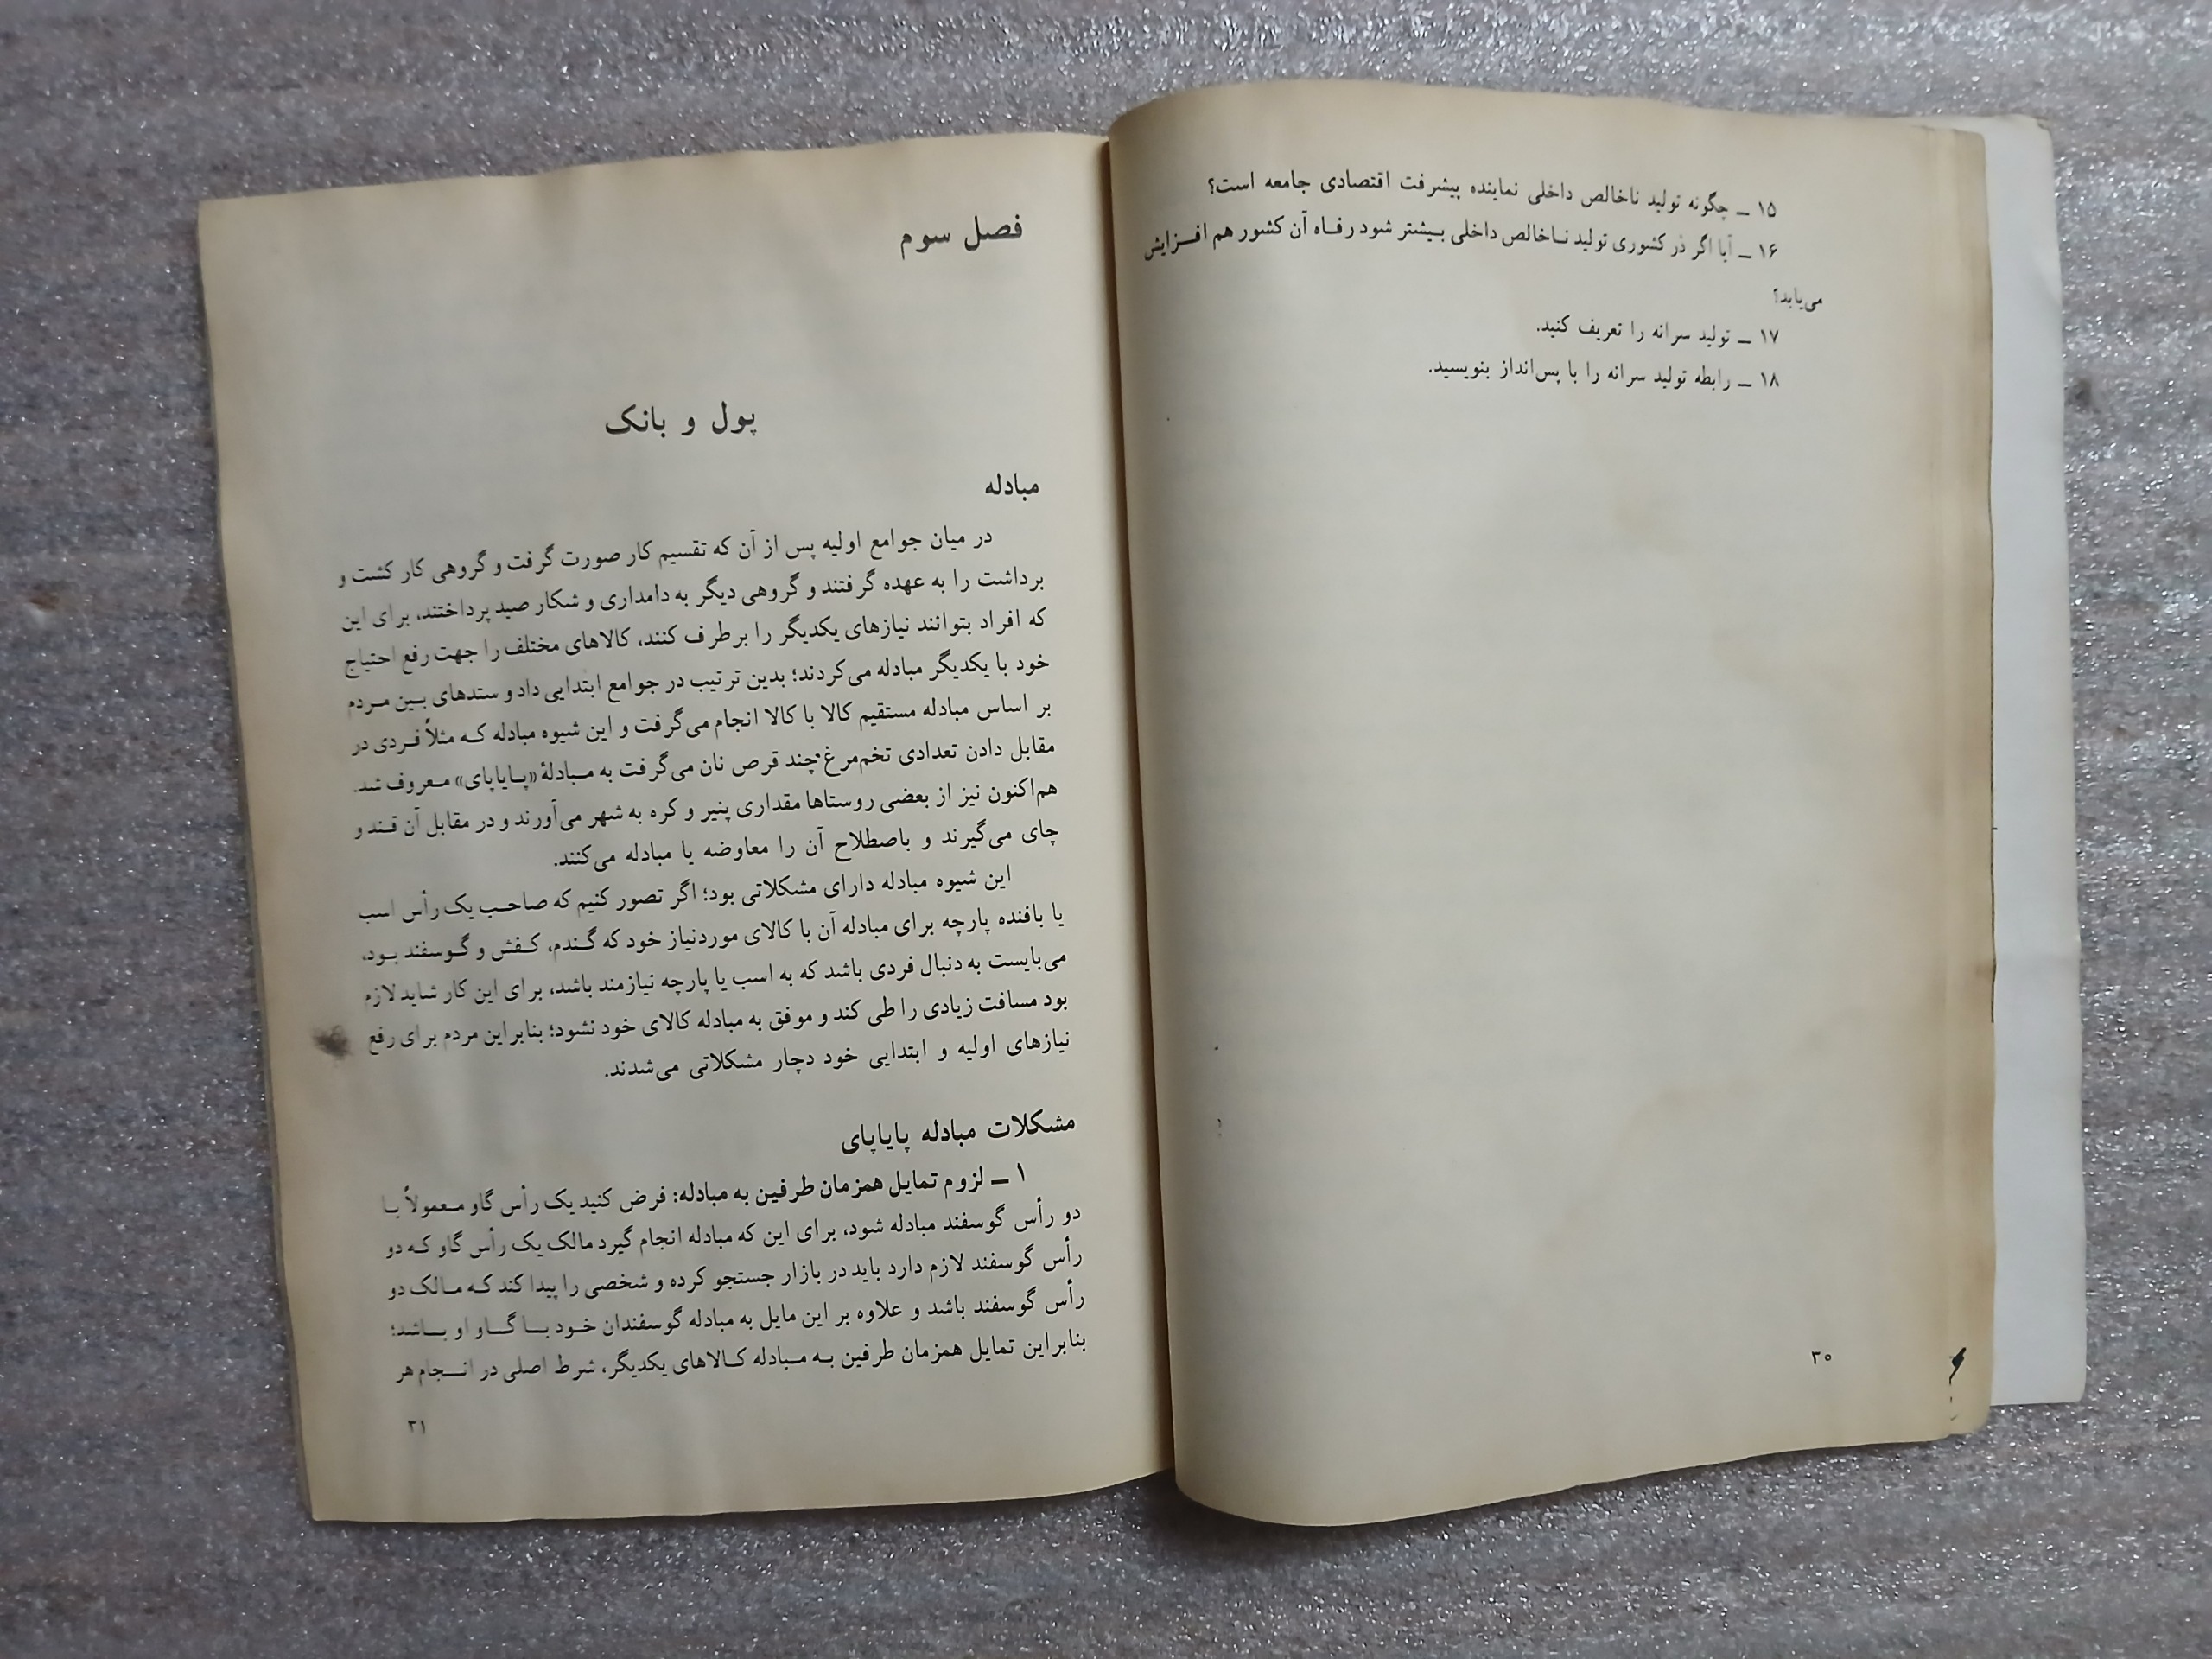 ۱۵ ــ چگونه تولید ناخالص داخلی نماینده پیشرفت اقتصادی جامعه است؟
۱۶ ــ آیا اگر در کشوری تولید ناخالص داخلی بیشتر شود رفاه آن کشور هم افزایش
می‌یابد؟
۱۷ ــ تولید سرانه را تعریف کنید.
۱۸ ــ رابطه تولید سرانه را با پس‌انداز بنویسید.
۳۰
فصل سوم
پول و بانک
مبادله
در میان جوامع اولیه پس از آن که تقسیم کار صورت گرفت و گروهی کار کشت و
برداشت را به عهده گرفتند و گروهی دیگر به دامداری و شکار صید پرداختند، برای این
که افراد بتوانند نیازهای یکدیگر را برطرف کنند، کالاهای مختلف را جهت رفع احتیاج
خود با یکدیگر مبادله می‌کردند؛ بدین ترتیب در جوامع ابتدایی داد و ستدهای بین مردم
بر اساس مبادله مستقیم کالا با کالا انجام می‌گرفت و این شیوه مبادله که مثلاً فردی در
مقابل دادن تعدادی تخم‌مرغ چند قرص نان می‌گرفت به مبادلهٔ «پایاپای» معروف شد.
هم‌اکنون نیز از بعضی روستاها مقداری پنیر و کره به شهر می‌آورند و در مقابل آن قند و
چای می‌گیرند و باصطلاح آن را معاوضه یا مبادله می‌کنند.
این شیوه مبادله دارای مشکلاتی بود؛ اگر تصور کنیم که صاحب یک رأس اسب
یا بافنده پارچه برای مبادله آن با کالای موردنیاز خود که گندم، کفش و گوسفند بود،
می‌بایست به دنبال فردی باشد که به اسب یا پارچه نیازمند باشد، برای این کار شاید لازم
بود مسافت زیادی را طی کند و موفق به مبادله کالای خود نشود؛ بنابراین مردم برای رفع
نیازهای اولیه و ابتدایی خود دچار مشکلاتی می‌شدند.
مشکلات مبادله پایاپای
۱ ــ لزوم تمایل همزمان طرفین به مبادله: فرض کنید یک رأس گاو معمولاً با
دو رأس گوسفند مبادله شود، برای این که مبادله انجام گیرد مالک یک رأس گاو که دو
رأس گوسفند لازم دارد باید در بازار جستجو کرده و شخصی را پیدا کند که مالک دو
رأس گوسفند باشد و علاوه بر این مایل به مبادله گوسفندان خود با گاو او باشد؛
بنابراین تمایل همزمان طرفین به مبادله کالاهای یکدیگر، شرط اصلی در انجام هر
۳۱